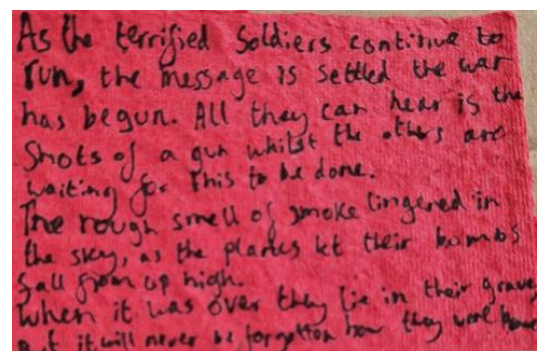 As the terrified Soldiers continue to
run, the message is settled the war
has begun. All they can hear is the
Shots of a gun whilst the others are
waiting for this to be done.
The rough smell of smoke lingered in
the sky, as the planes let their bombs
fall from up high.
When it was over they lie in their graves
but it will never be forgotten how they were